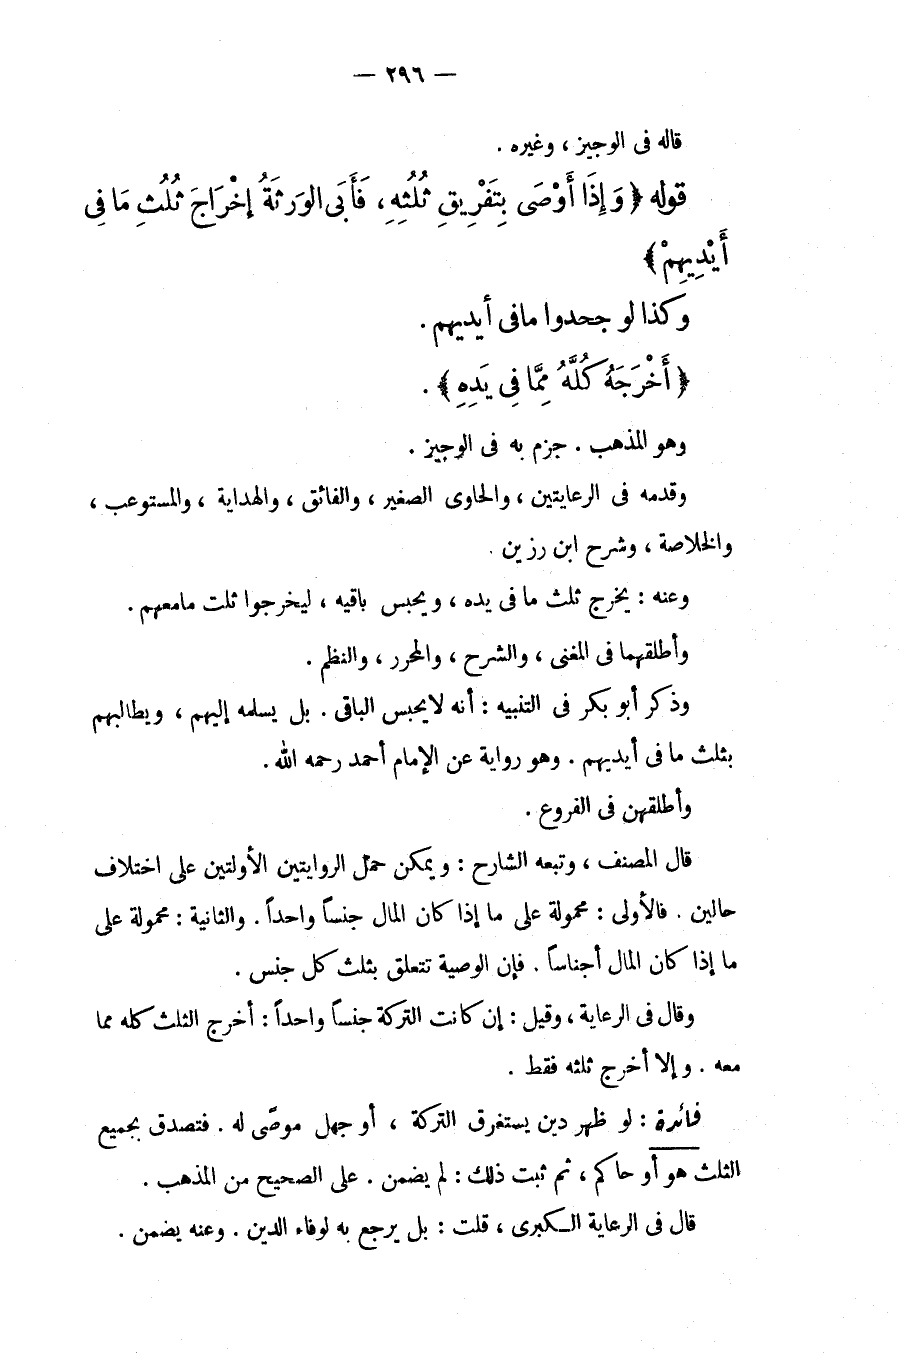 — ٢٩٦ —
قاله فى الوجيز ، وغيره .
قوله ﴿ وَإِذَا أَوْصَى بِتَفْرِيقِ ثُلُثِهِ، فَأَبَى الوَرثَةُ إخْرَاجَ ثُلُثِ مَا فِى
أَيْدِيهِمْ ﴾
وكذا لو جحدوا مافى أيديهم .
﴿ أَخْرَجَهُ كُلَّهُ مِمَّا فِى يَدِهِ ﴾ .
وهو المذهب . جزم به فى الوجيز .
وقدمه فى الرعايتين ، والحاوى الصغير ، والفائق ، والهداية ، والمستوعب ،
والخلاصة ، وشرح ابن رزين .
وعنه : يخرج ثلث ما فى يده ، ويحبس باقيه ، ليخرجوا ثلث مامعهم .
وأطلقهما فى المغنى ، والشرح ، والمحرر ، والنظم .
وذكر أبو بكر فى التنبيه : أنه لايحبس الباقى . بل يسلمه إليهم ، ويطالبهم
بثلث ما فى أيديهم . وهو رواية عن الإمام أحمد رحمه الله .
وأطلقهن فى الفروع .
قال المصنف ، وتبعه الشارح : ويمكن حمل الروايتين الأولتين على اختلاف
حالين . فالأولى : محمولة على ما إذا كان المال جنساً واحداً . والثانية : محمولة على
ما إذا كان المال أجناساً . فإن الوصية تتعلق بثلث كل جنس .
وقال فى الرعاية ، وقيل : إن كانت التركة جنساً واحداً : أخرج الثلث كله مما
معه . وإلا أخرج ثلثه فقط .
فائدة : لو ظهر دين يستغرق التركة ، أو جهل موصًى له . فتصدق بجميع
الثلث هو أو حاكم ، ثم ثبت ذلك : لم يضمن . على الصحيح من المذهب .
قال فى الرعاية الكبرى ، قلت : بل يرجع به لوفاء الدين . وعنه يضمن .